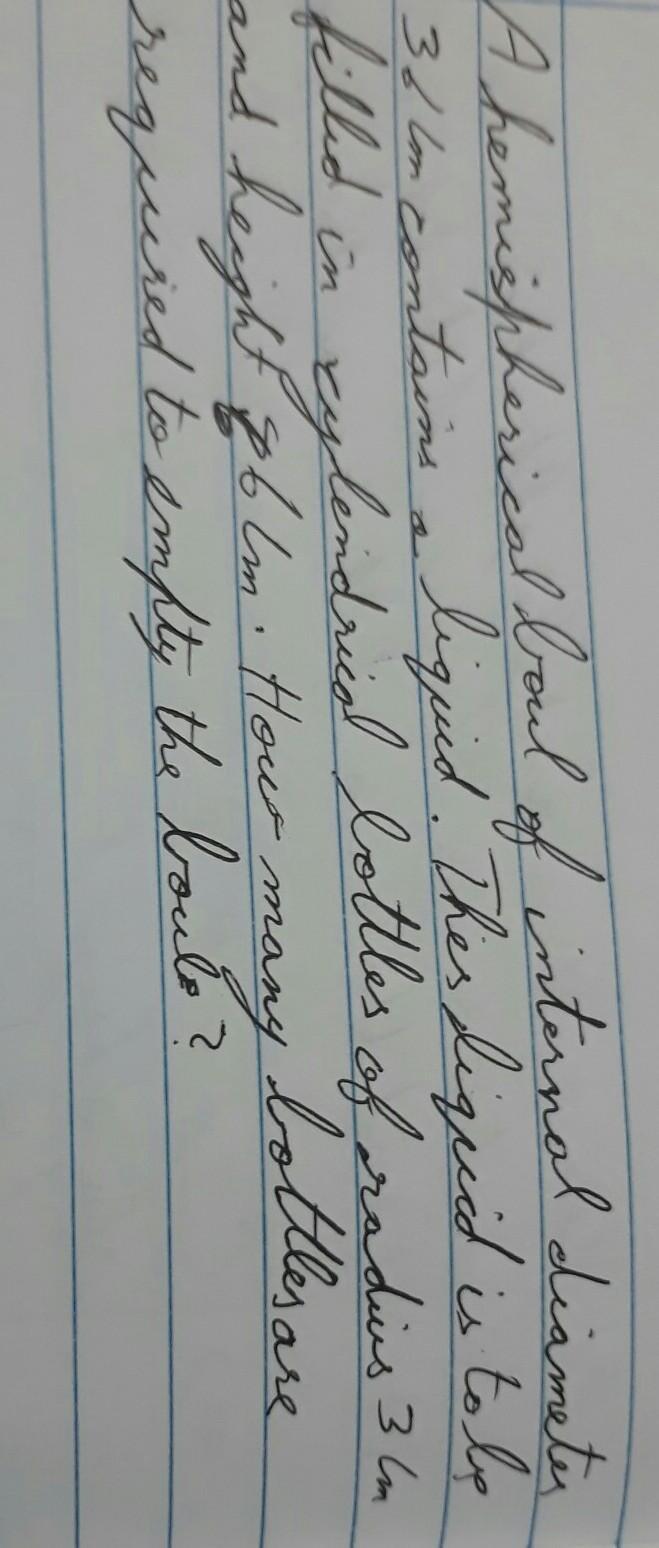 A hemispherical bowl of internal diameter
36 cm contains a liquid. This liquid is to be
filled in cylindrical bottles of radius 3 cm
and height 6 cm. How many bottles are
required to empty the bowl?